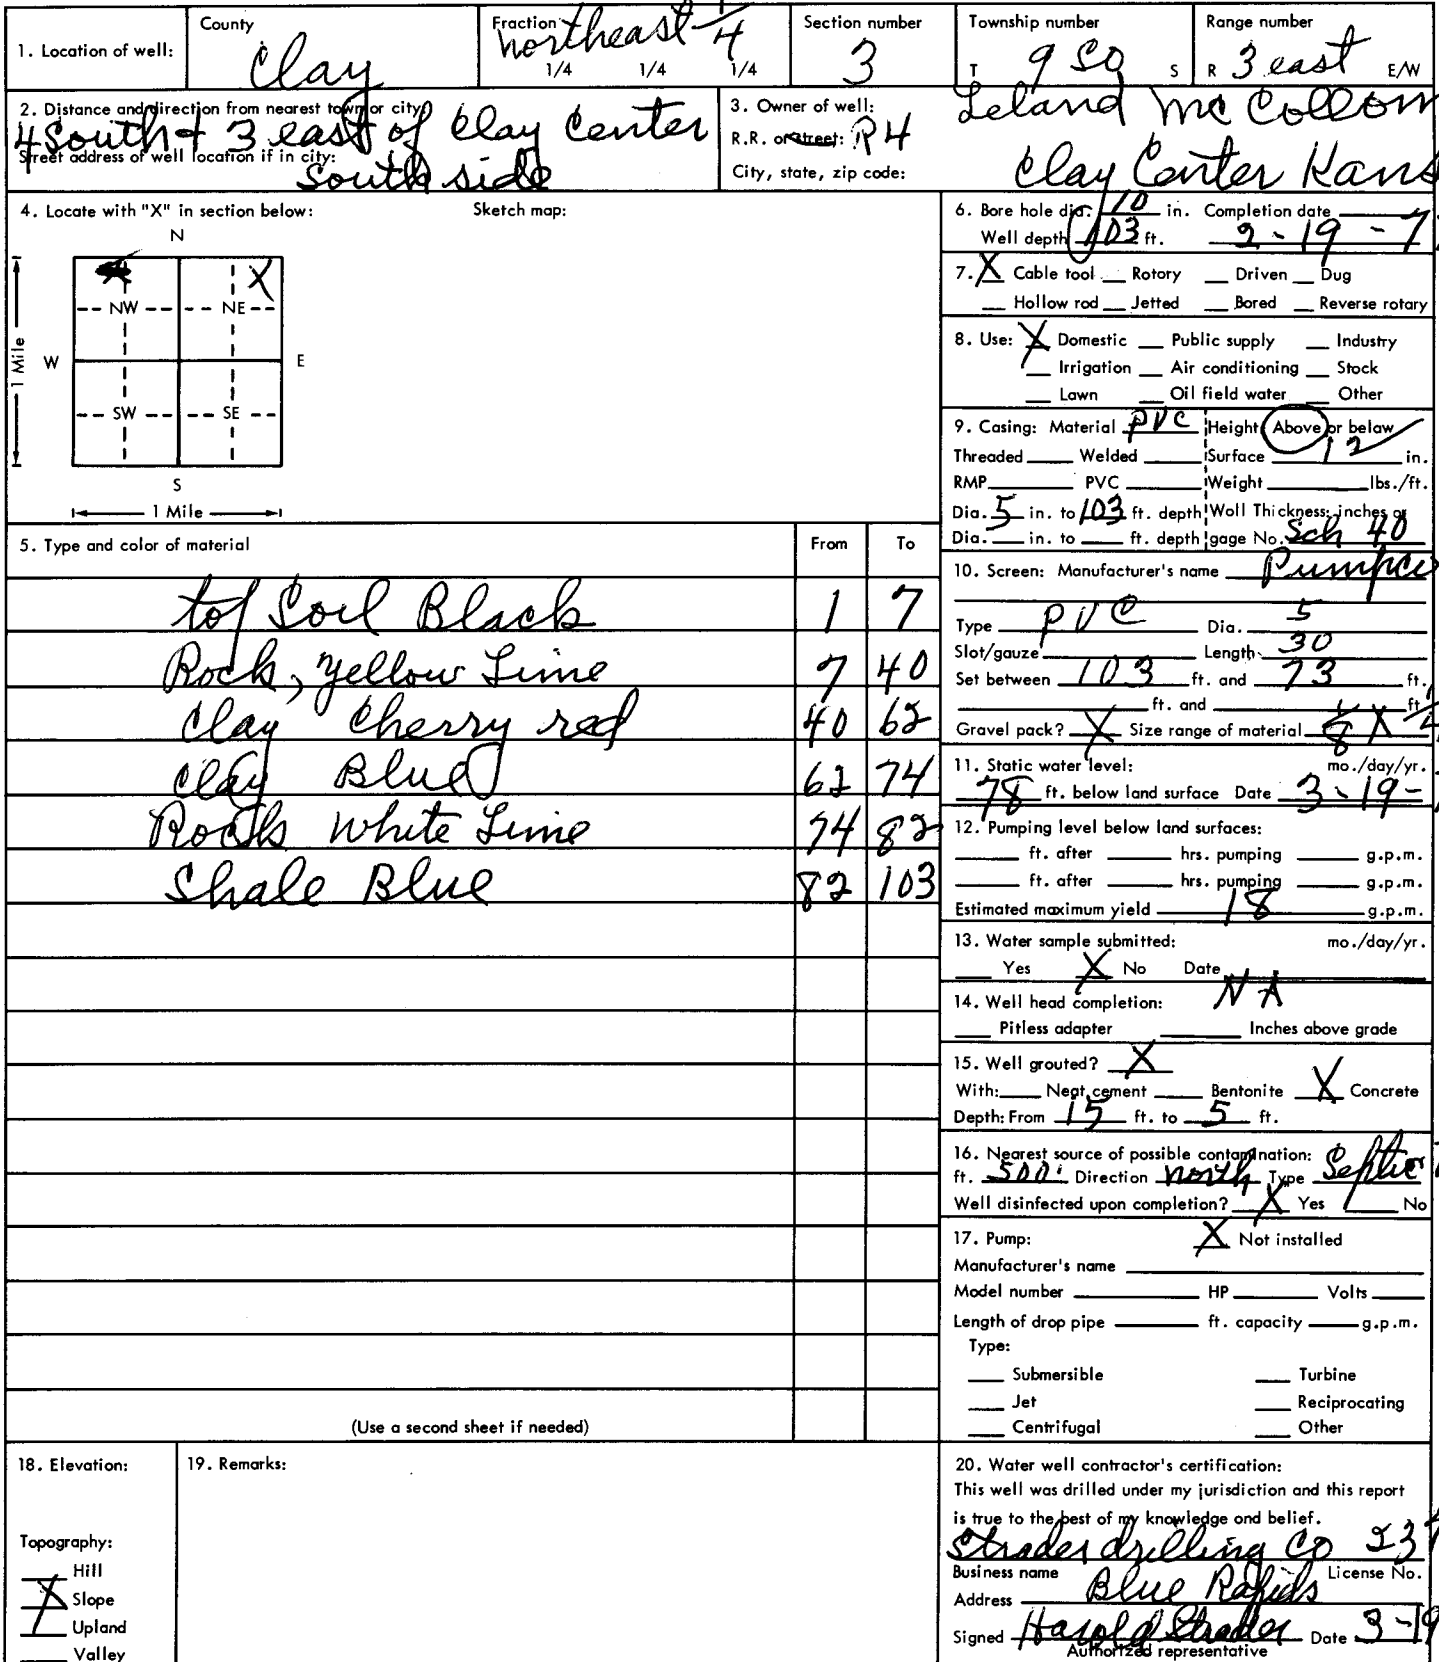 1. Location of well:
County
Clay
Fraction
northeast 1/4
1/4 1/4 1/4
Section number
3
Township number
T 9 SO S
Range number
R 3 east E/W
2. Distance and direction from nearest town or city:
4 South + 3 east of Clay Center
Street address of well location if in city:
South side
3. Owner of well: Leland McCollom
R.R. or street: R4
City, state, zip code: Clay Center Kans
4. Locate with "X" in section below: Sketch map:
N
X
NW NE
W E
1 Mile
SW SE
S
1 Mile
5. Type and color of material From To
top Soil Black 1 7
Rock, yellow Lime 7 40
Clay Cherry red 40 62
Clay Blue 62 74
Rock White Lime 74 82
Shale Blue 82 103
(Use a second sheet if needed)
6. Bore hole dia. 10 in. Completion date
Well depth 103 ft. 2-19-7
7. X Cable tool Rotory Driven Dug
Hollow rod Jetted Bored Reverse rotary
8. Use: X Domestic Public supply Industry
Irrigation Air conditioning Stock
Lawn Oil field water Other
9. Casing: Material PVC Height: Above or below
Threaded Welded Surface 12 in.
RMP PVC Weight lbs./ft.
Dia. 5 in. to 103 ft. depth Woll Thickness: inches or
Dia. in. to ft. depth gage No. Sch 40
10. Screen: Manufacturer's name
Type PVC Dia. 5
Slot/gauze Length 30
Set between 103 ft. and 73 ft.
ft. and ft.
Gravel pack? X Size range of material 1/8 X 1/4
11. Static water level: mo./day/yr.
78 ft. below land surface Date 3-19-
12. Pumping level below land surfaces:
ft. after hrs. pumping g.p.m.
ft. after hrs. pumping g.p.m.
Estimated maximum yield 18 g.p.m.
13. Water sample submitted: mo./day/yr.
Yes X No Date
14. Well head completion: NA
Pitless adapter Inches above grade
15. Well grouted? X
With: Neat cement Bentonite X Concrete
Depth: From 15 ft. to 5 ft.
16. Nearest source of possible contamination:
ft. 500' Direction north Type Septic
Well disinfected upon completion? X Yes No
17. Pump: X Not installed
Manufacturer's name
Model number HP Volts
Length of drop pipe ft. capacity g.p.m.
Type:
Submersible Turbine
Jet Reciprocating
Centrifugal Other
18. Elevation:
Topography:
Hill
X Slope
Upland
Valley
19. Remarks:
20. Water well contractor's certification:
This well was drilled under my jurisdiction and this report
is true to the best of my knowledge and belief.
Strader drilling Co 23
Business name License No.
Address Blue Rapids
Signed Harold Strader Date 3-19
Authorized representative